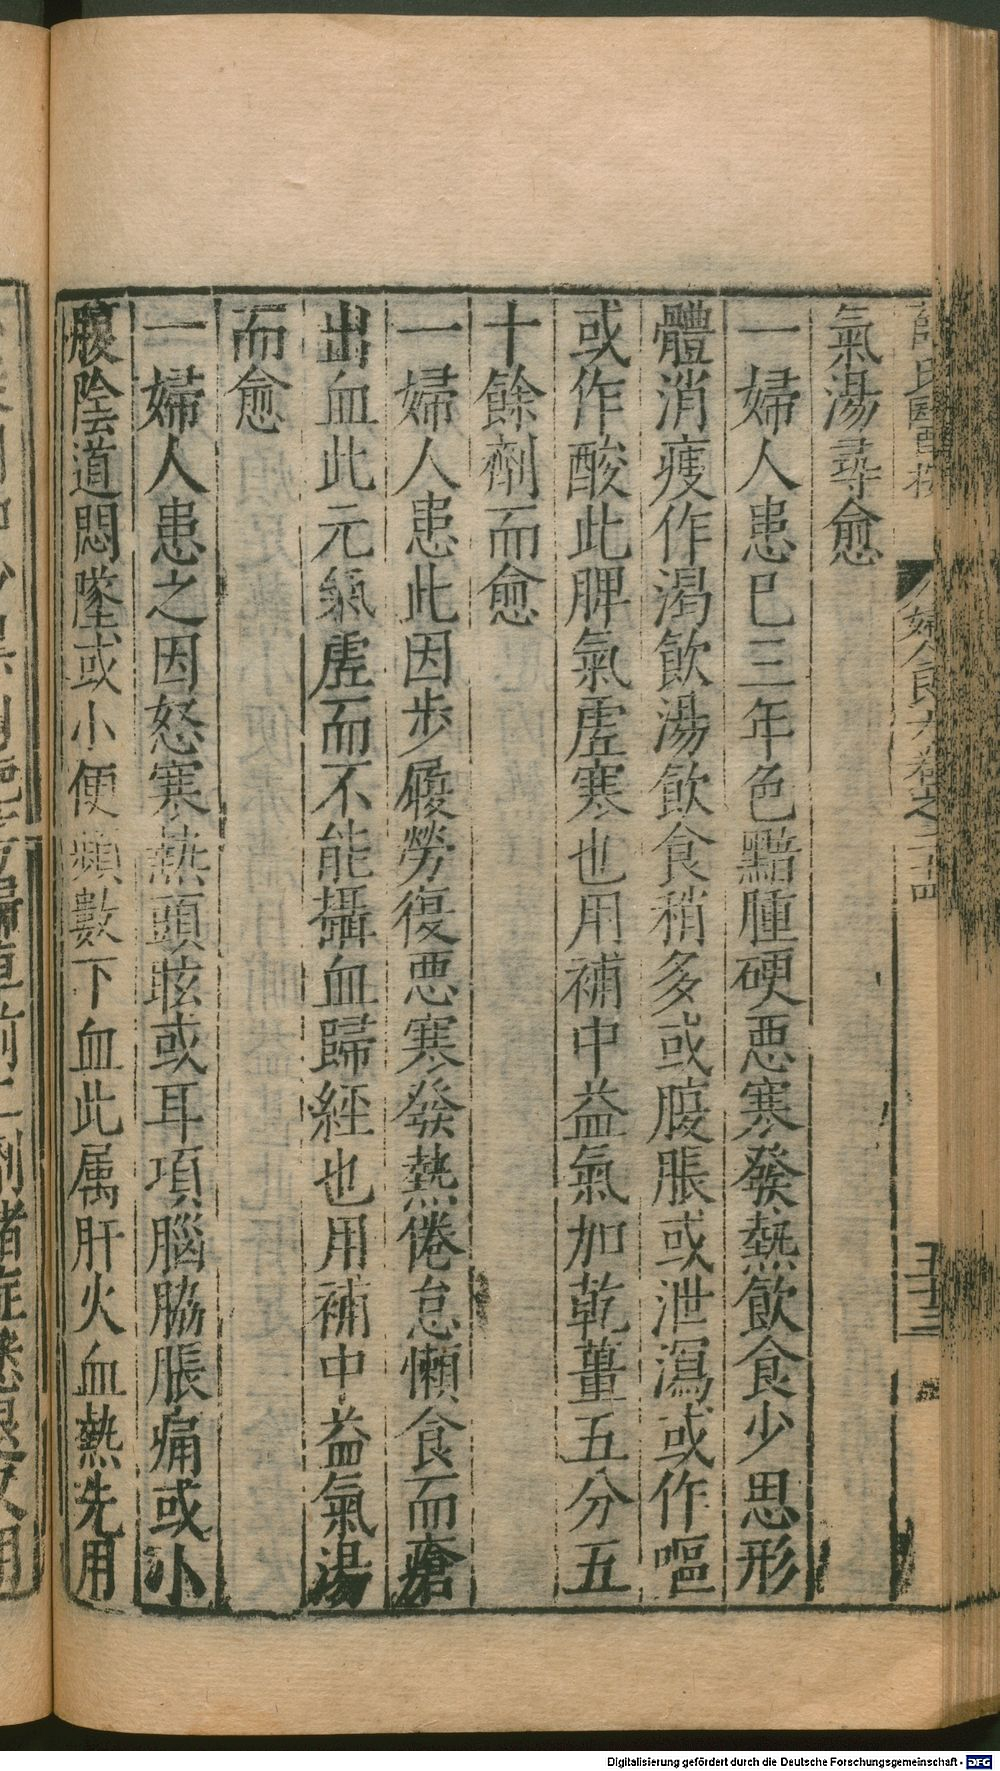 薛氏醫按 婦人良方卷之二十四 五十三
氣湯尋愈
一婦人患巳三年色黯腫硬惡寒發熱飲食少思形
體消瘦作渴飲湯飲食稍多或腹脹或泄瀉或作嘔
或作酸此脾氣虛寒也用補中益氣加乾薑五分五
十餘劑而愈
一婦人患此因步履勞復惡寒發熱倦怠懶食而瘡
出血此元氣虛而不能攝血歸經也用補中益氣湯
而愈
一婦人患之因怒寒熱頭眩或耳項腦脇脹痛或小
腹陰道悶墜或小便頻數下血此属肝火血熱先用
Digitalisierung gefördert durch die Deutsche Forschungsgemeinschaft - DFG